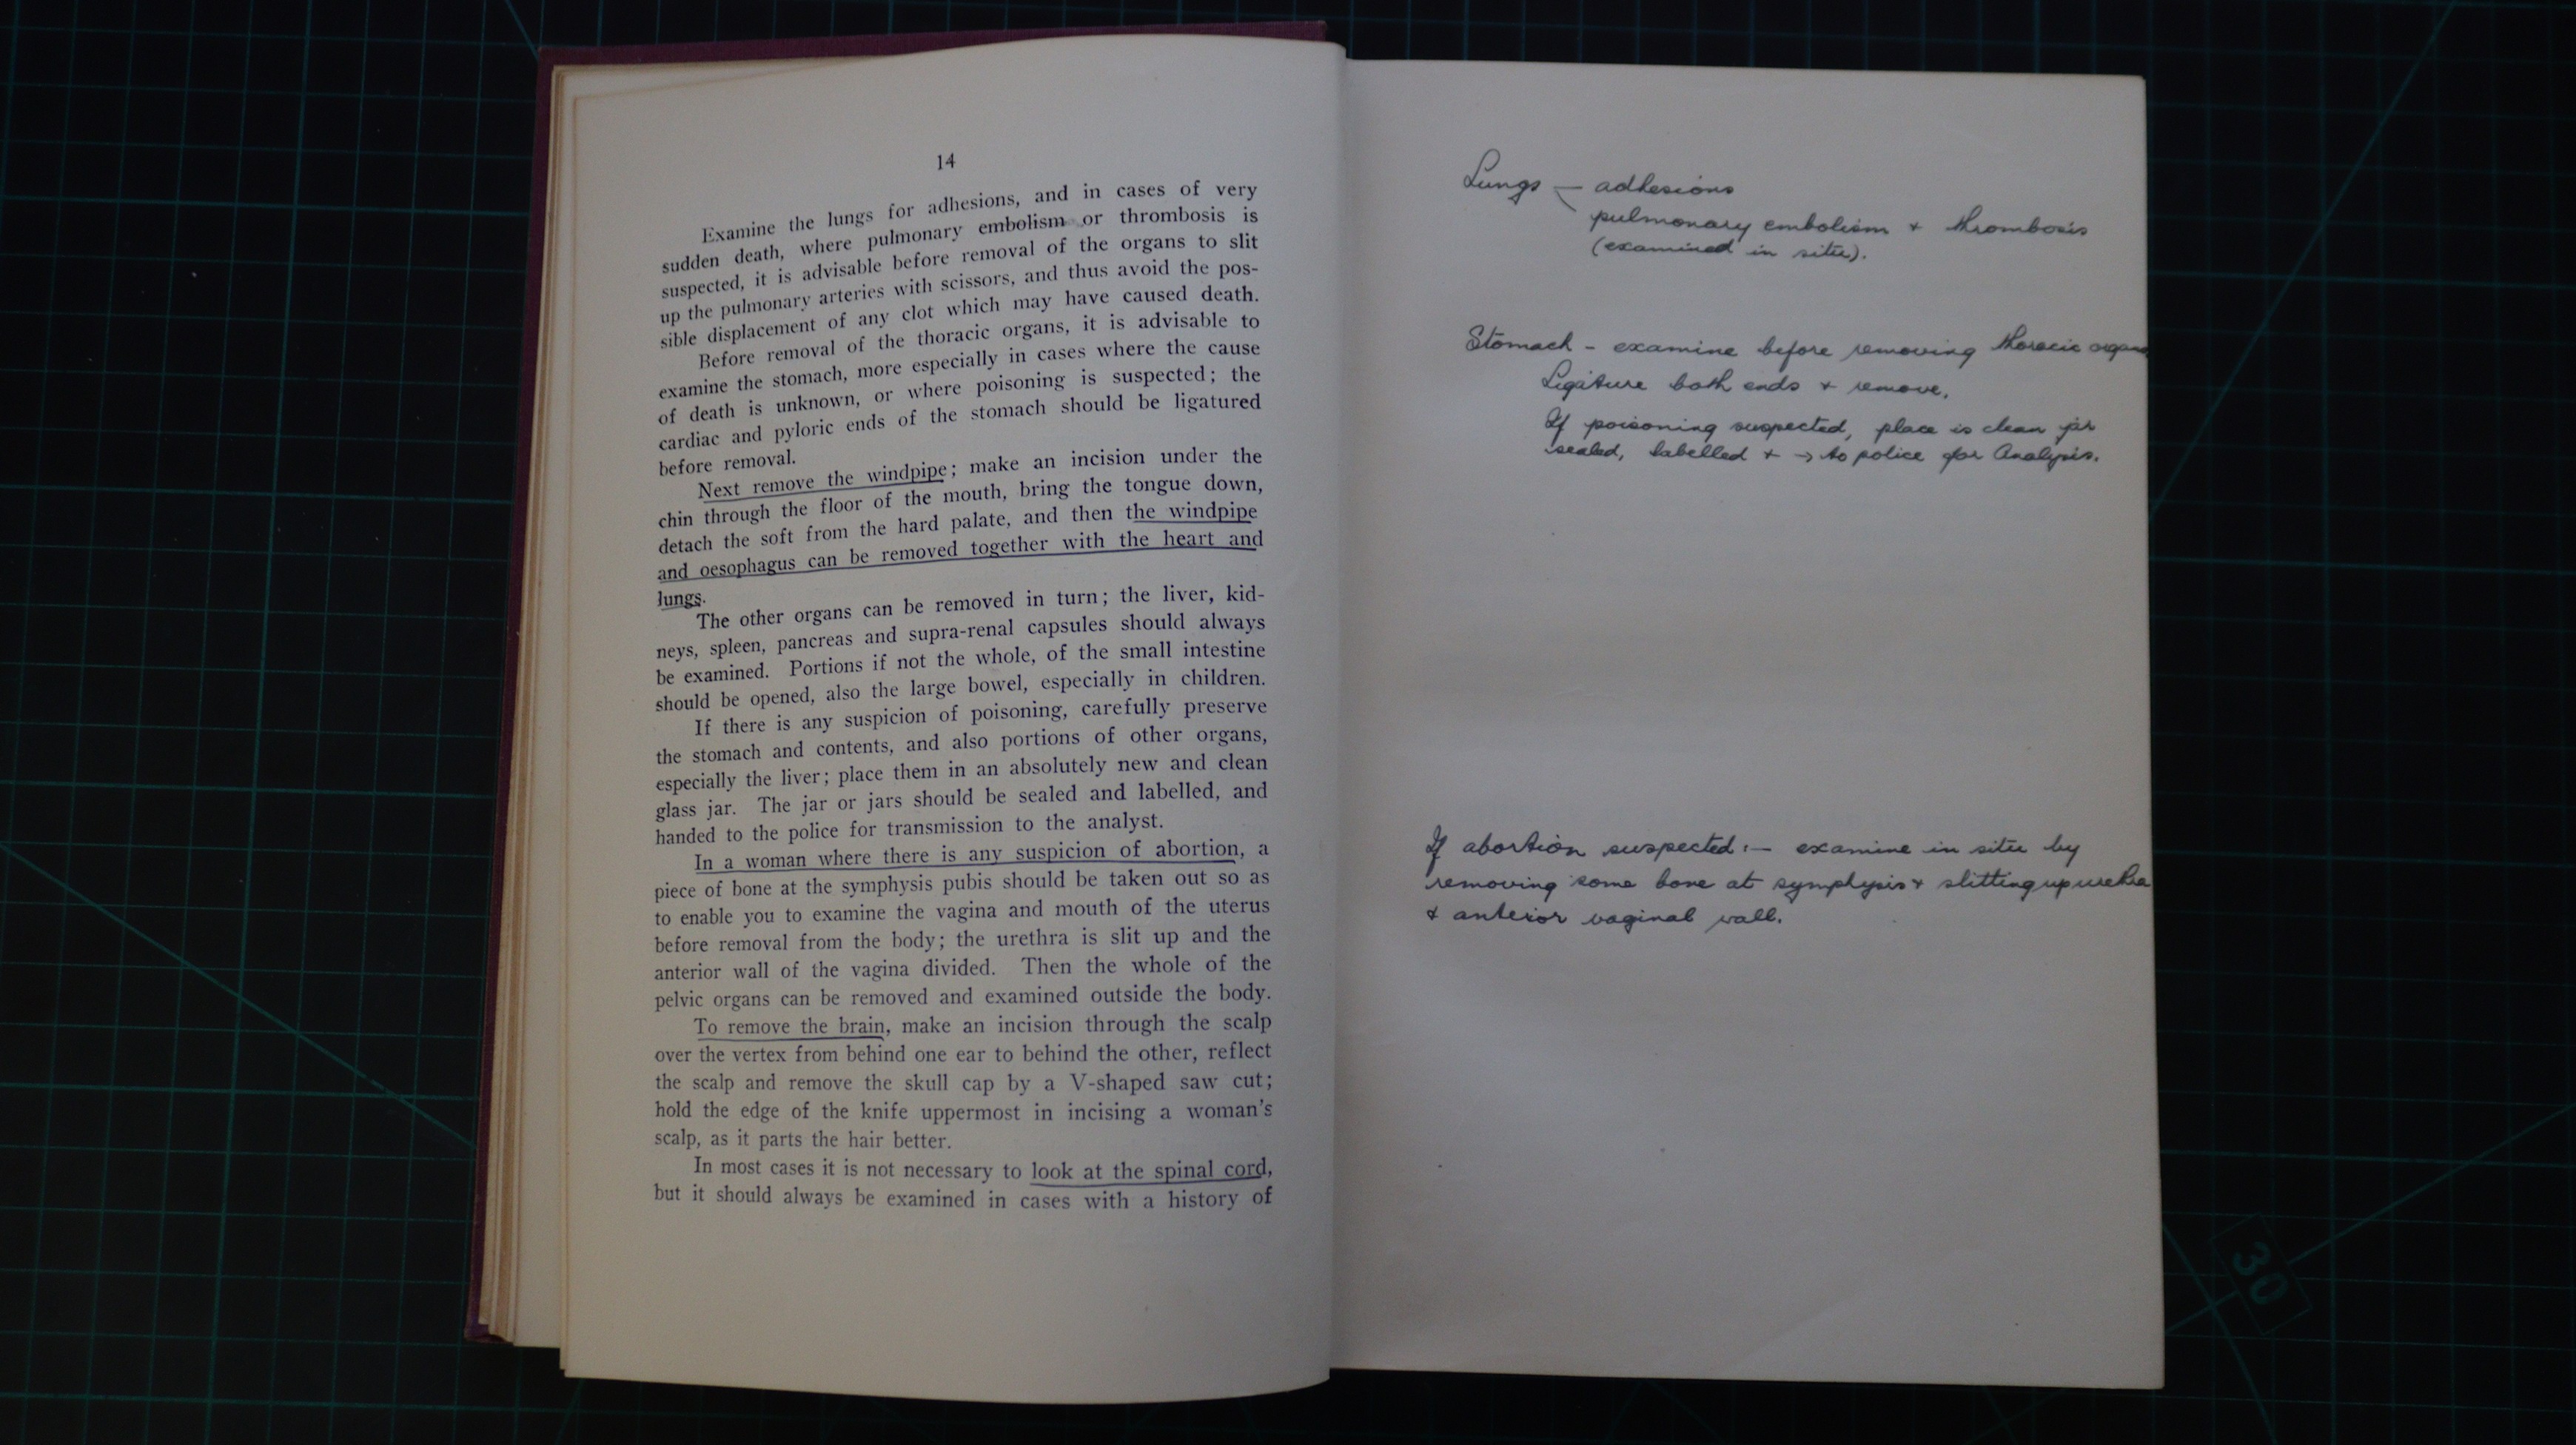 14
Examine the lungs for adhesions, and in cases of very
sudden death, where pulmonary embolism or thrombosis is
suspected, it is advisable before removal of the organs to slit
up the pulmonary arteries with scissors, and thus avoid the pos-
sible displacement of any clot which may have caused death.
Before removal of the thoracic organs, it is advisable to
examine the stomach, more especially in cases where the cause
of death is unknown, or where poisoning is suspected; the
cardiac and pyloric ends of the stomach should be ligatured
before removal.
Next remove the windpipe; make an incision under the
chin through the floor of the mouth, bring the tongue down,
detach the soft from the hard palate, and then the windpipe
and oesophagus can be removed together with the heart and
lungs.
The other organs can be removed in turn; the liver, kid-
neys, spleen, pancreas and supra-renal capsules should always
be examined. Portions if not the whole, of the small intestine
should be opened, also the large bowel, especially in children.
If there is any suspicion of poisoning, carefully preserve
the stomach and contents, and also portions of other organs,
especially the liver; place them in an absolutely new and clean
glass jar. The jar or jars should be sealed and labelled, and
handed to the police for transmission to the analyst.
In a woman where there is any suspicion of abortion, a
piece of bone at the symphysis pubis should be taken out so as
to enable you to examine the vagina and mouth of the uterus
before removal from the body; the urethra is slit up and the
anterior wall of the vagina divided. Then the whole of the
pelvic organs can be removed and examined outside the body.
To remove the brain, make an incision through the scalp
over the vertex from behind one ear to behind the other, reflect
the scalp and remove the skull cap by a V-shaped saw cut;
hold the edge of the knife uppermost in incising a woman's
scalp, as it parts the hair better.
In most cases it is not necessary to look at the spinal cord,
but it should always be examined in cases with a history of
Lungs — adhesions
pulmonary embolism + thrombosis
(examined in situ).
Stomach - examine before removing thoracic organs
Ligature both ends + remove.
If poisoning suspected, place is clean jar
sealed, labelled + → to police for Analysis.
If abortion suspected :— examine in situ by
removing some bone at symphysis + slitting up urethra
+ anterior vaginal wall.
30